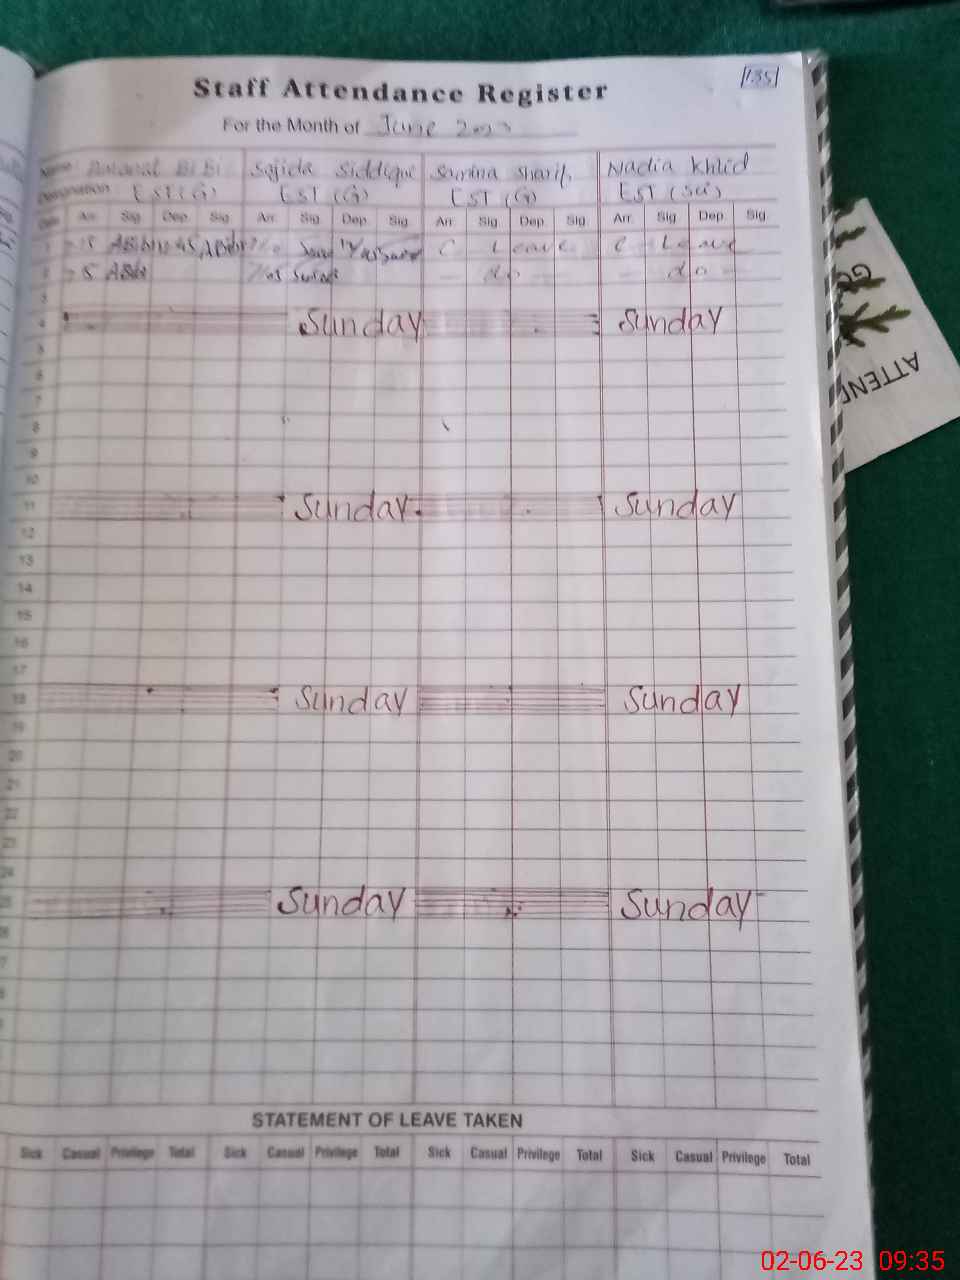 135
Staff Attendance Register
For the Month of June 2023
Name Bi Bi Sajida Siddique Samina Sharif Nadia Khlid
Designation EST (G) EST (G) EST (G) EST (Sci)
Arr. Sig. Dep. Sig. Arr. Sig. Dep. Sig. Arr. Sig. Dep. Sig. Arr. Sig. Dep. Sig.
1 C Leave C Leave
2 do do
3
4 Sunday Sunday
5
6
7
8
9
10
11 Sunday Sunday
12
13
14
15
16
17
18 Sunday Sunday
19
20
21
22
23
24
25 Sunday Sunday
STATEMENT OF LEAVE TAKEN
Sick Casual Privilege Total Sick Casual Privilege Total Sick Casual Privilege Total Sick Casual Privilege Total
ATTEND
02-06-23 09:35